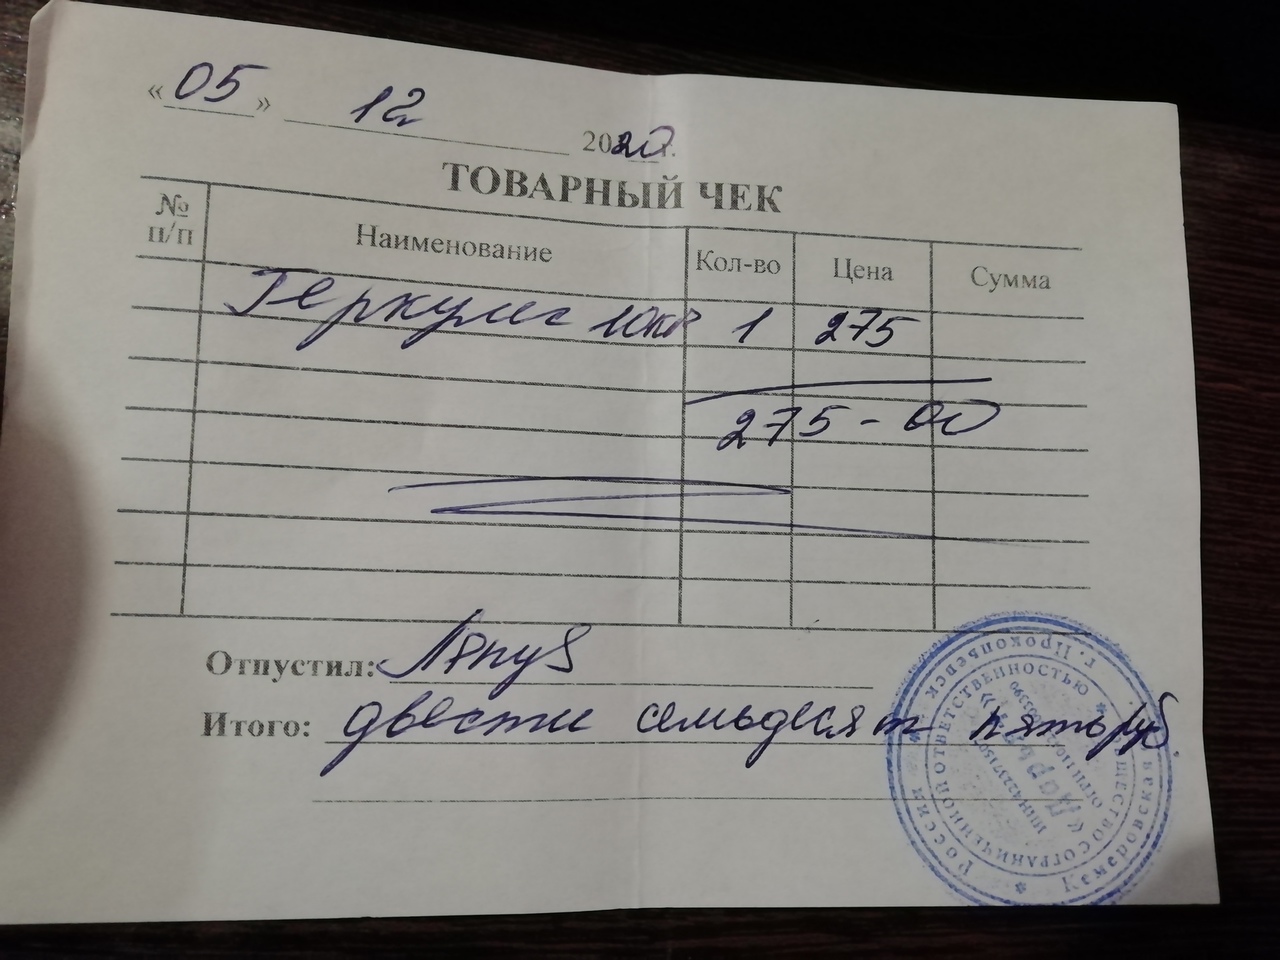 « 05 » 12 2020г.
ТОВАРНЫЙ ЧЕК
№ п/п Наименование Кол-во Цена Сумма
Геркулес 10кг 1 275
275-00
Отпустил:
Итого: двести семьдесят пять руб
Россия * Кемеровская г. Прокопьевск *
ОБЩЕСТВО С ОГРАНИЧЕННОЙ ОТВЕТСТВЕННОСТЬЮ *